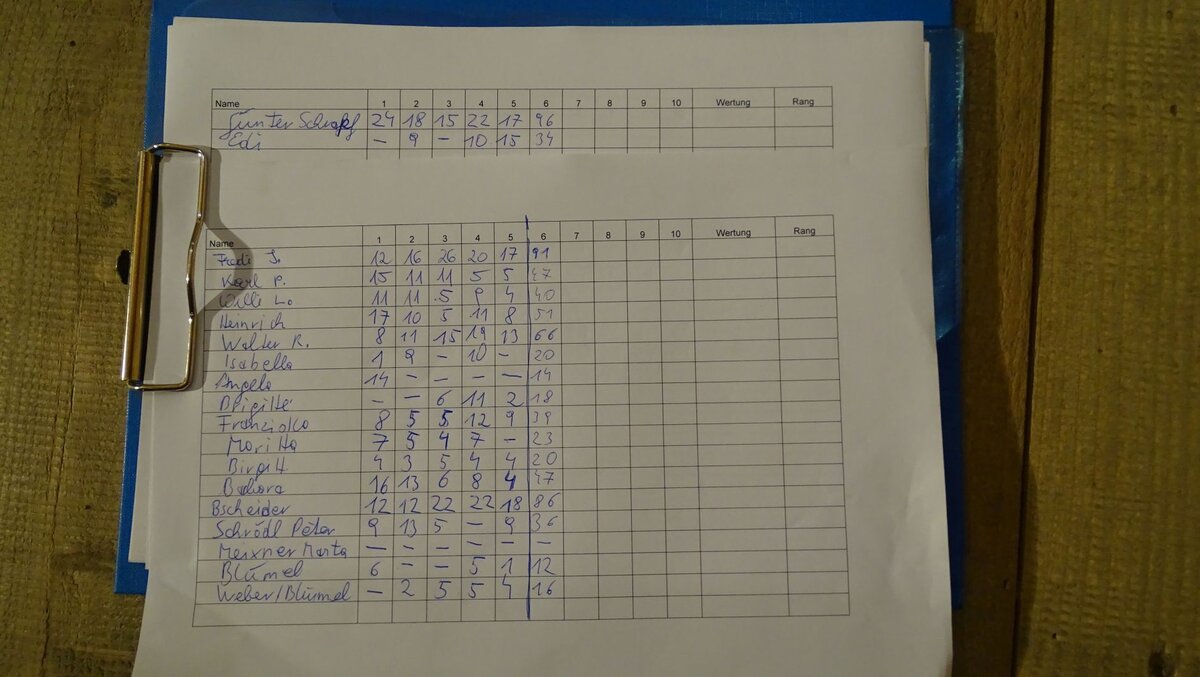 Name 1 2 3 4 5 6 7 8 9 10 Wertung Rang
Günter 24 18 15 22 17 96
Edi — 9 — 10 15 34
Name 1 2 3 4 5 6 7 8 9 10 Wertung Rang
Fredi J. 12 16 26 20 17 91
Karl P. 15 11 11 5 5 47
Willi L. 11 11 5 9 4 40
Heinrich 17 10 5 11 8 51
Walter R. 8 11 15 19 13 66
Isabella 1 9 — 10 — 20
Angela 14 — — — — 14
Brigitte — — 6 11 2 18
Franziska 8 5 5 12 9 39
Maritta 7 5 4 7 — 23
Birgitt 4 3 5 4 4 20
Barbara 16 13 6 8 4 47
Bscheider 12 12 22 22 18 86
Schrödl Peter 9 13 5 — 9 36
Meixner Marta — — — — — —
Blümel 6 — — 5 1 12
Weber/Blümel — 2 5 5 4 16